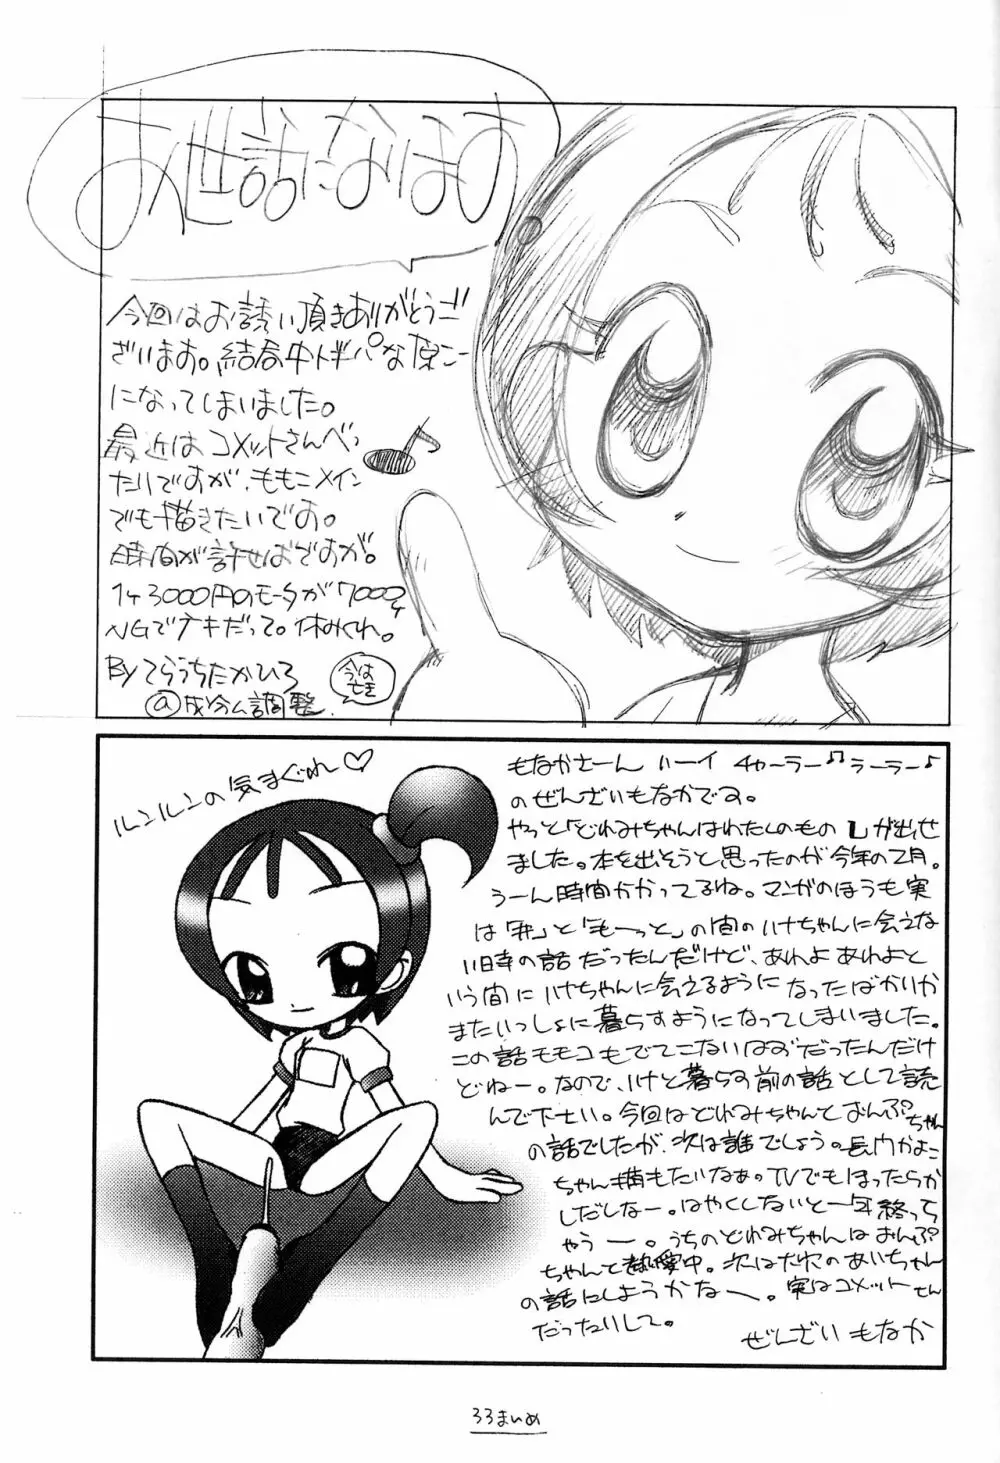 お世話になります
今回はお誘い頂きありがとうご
ざいます。結局中トギパな原こー
になってしまいました。
最近はコメットさんべっ
たりですが、ももこメイン
でも描きたいです。
時間が許せばですが。
1ヶ3000円のモータが7000ヶ
NGでナキだって。休みくれ。
Byてらうちたかひろ
@成分ム調整
今は亡き
ルンルンの気まぐれ♡
もなかさーん ハーイ チャーラー♫ラーラー♪
のぜんざいもなかです。
やっと「どれみちゃんはわたしのもの」が出せ
ました。本を出そうと思ったのが今年の2月。
うーん時間かかってるね。マンガのほうも実
は「#」と「もーっと」の間のハナちゃんに会えな
い時の話だったんだけど、あれよあれよと
いう間にハナちゃんに会えるようになったばかりか
またいっしょに暮らすようになってしまいました。
この話モモコもでてこないはずだったんだけ
どねー。なので、ハナと暮らす前の話として読
んで下さい。今回はどれみちゃんとおんぷちゃん
の話でしたが、次は誰でしょう。長門かよこ
ちゃん描もたいなぁ。TVでもほったらか
しだしなー。はやくしないと一年終っち
ゃうー。うちのどれみちゃんはおんぷ
ちゃんと熱愛中。次はだれのあいちゃん
の話にしようかなー。実はコメットさん
だったりして。
ぜんざいもなか
33まいめ